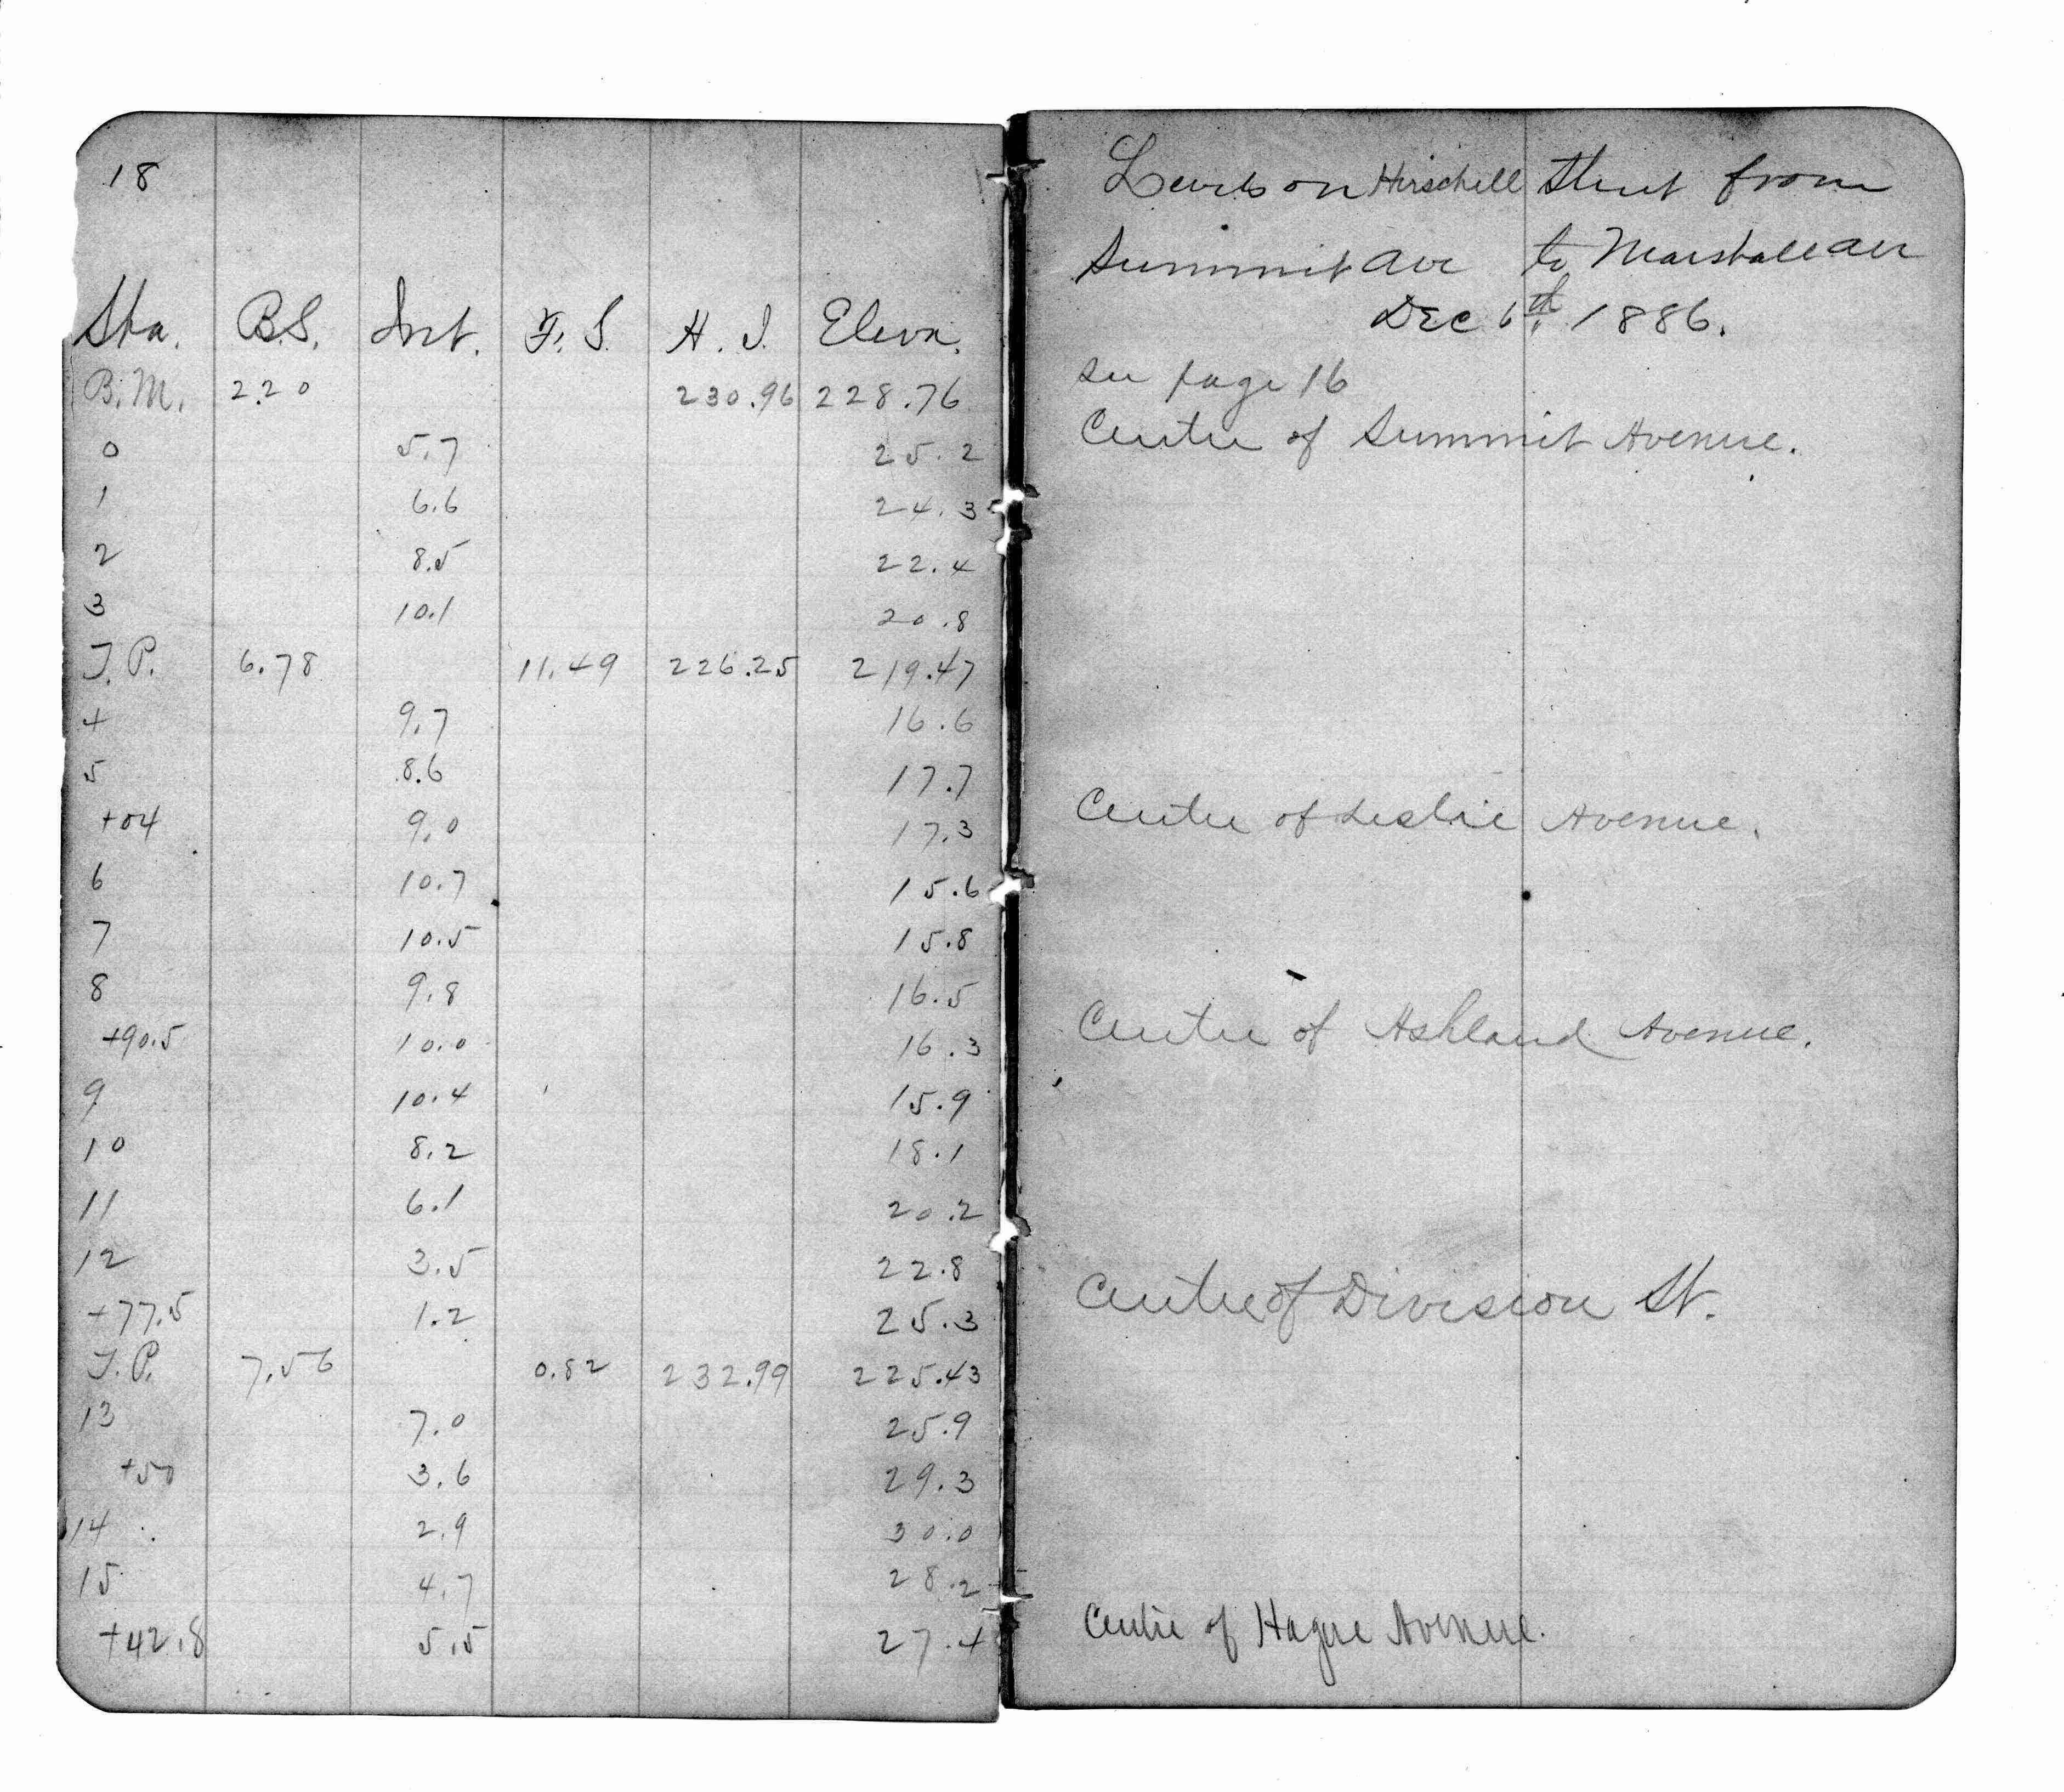 18
Sta. B.S. Int. F. S. H. I. Eleva.
B.M. 2.20 230.96 228.76
0 5.7 25.2
1 6.6 24.3
2 8.5 22.4
3 10.1 20.8
T.P. 6.78 11.49 226.25 219.47
4 9.7 16.6
5 8.6 17.7
+04 9.0 17.3
6 10.7 15.6
7 10.5 15.8
8 9.8 16.5
+90.5 10.0 16.3
9 10.4 15.9
10 8.2 18.1
11 6.1 20.2
12 3.5 22.8
+77.5 1.2 25.3
T.P. 7.56 0.82 232.99 225.43
13 7.0 25.9
+50 3.6 29.3
14 2.9 30.0
15 4.7 28.2
+42.8 5.5 27.4
Levels on Hirschell Street from
Summit Ave to Marshall Ave
Dec 6th 1886.
see page 16
Centre of Summit Avenue.
Centre of Leslie Avenue.
Centre of Ashland Avenue.
Centre of Division St.
Centre of Hague Avenue.